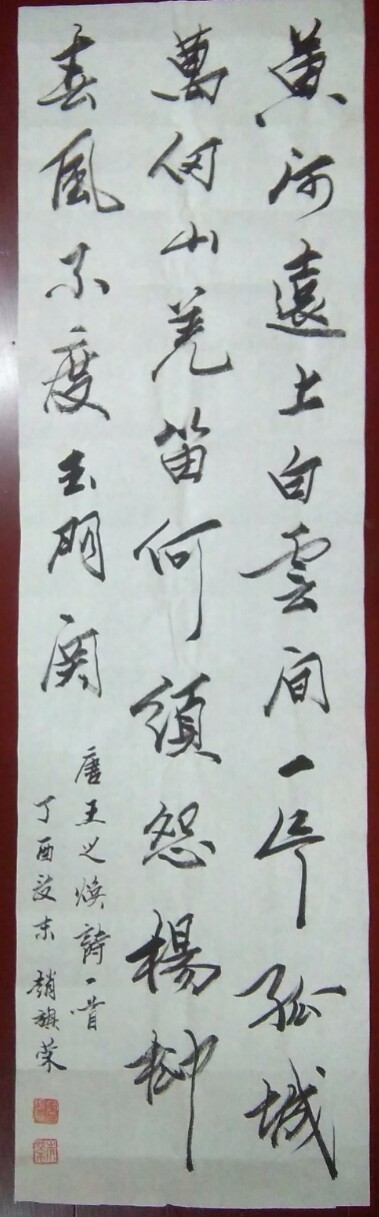 黄河遠上白雲间一片孤城
萬仞山羌笛何須怨楊柳
春風不度玉門関
唐王之焕詩一首
丁酉 趙旗荣